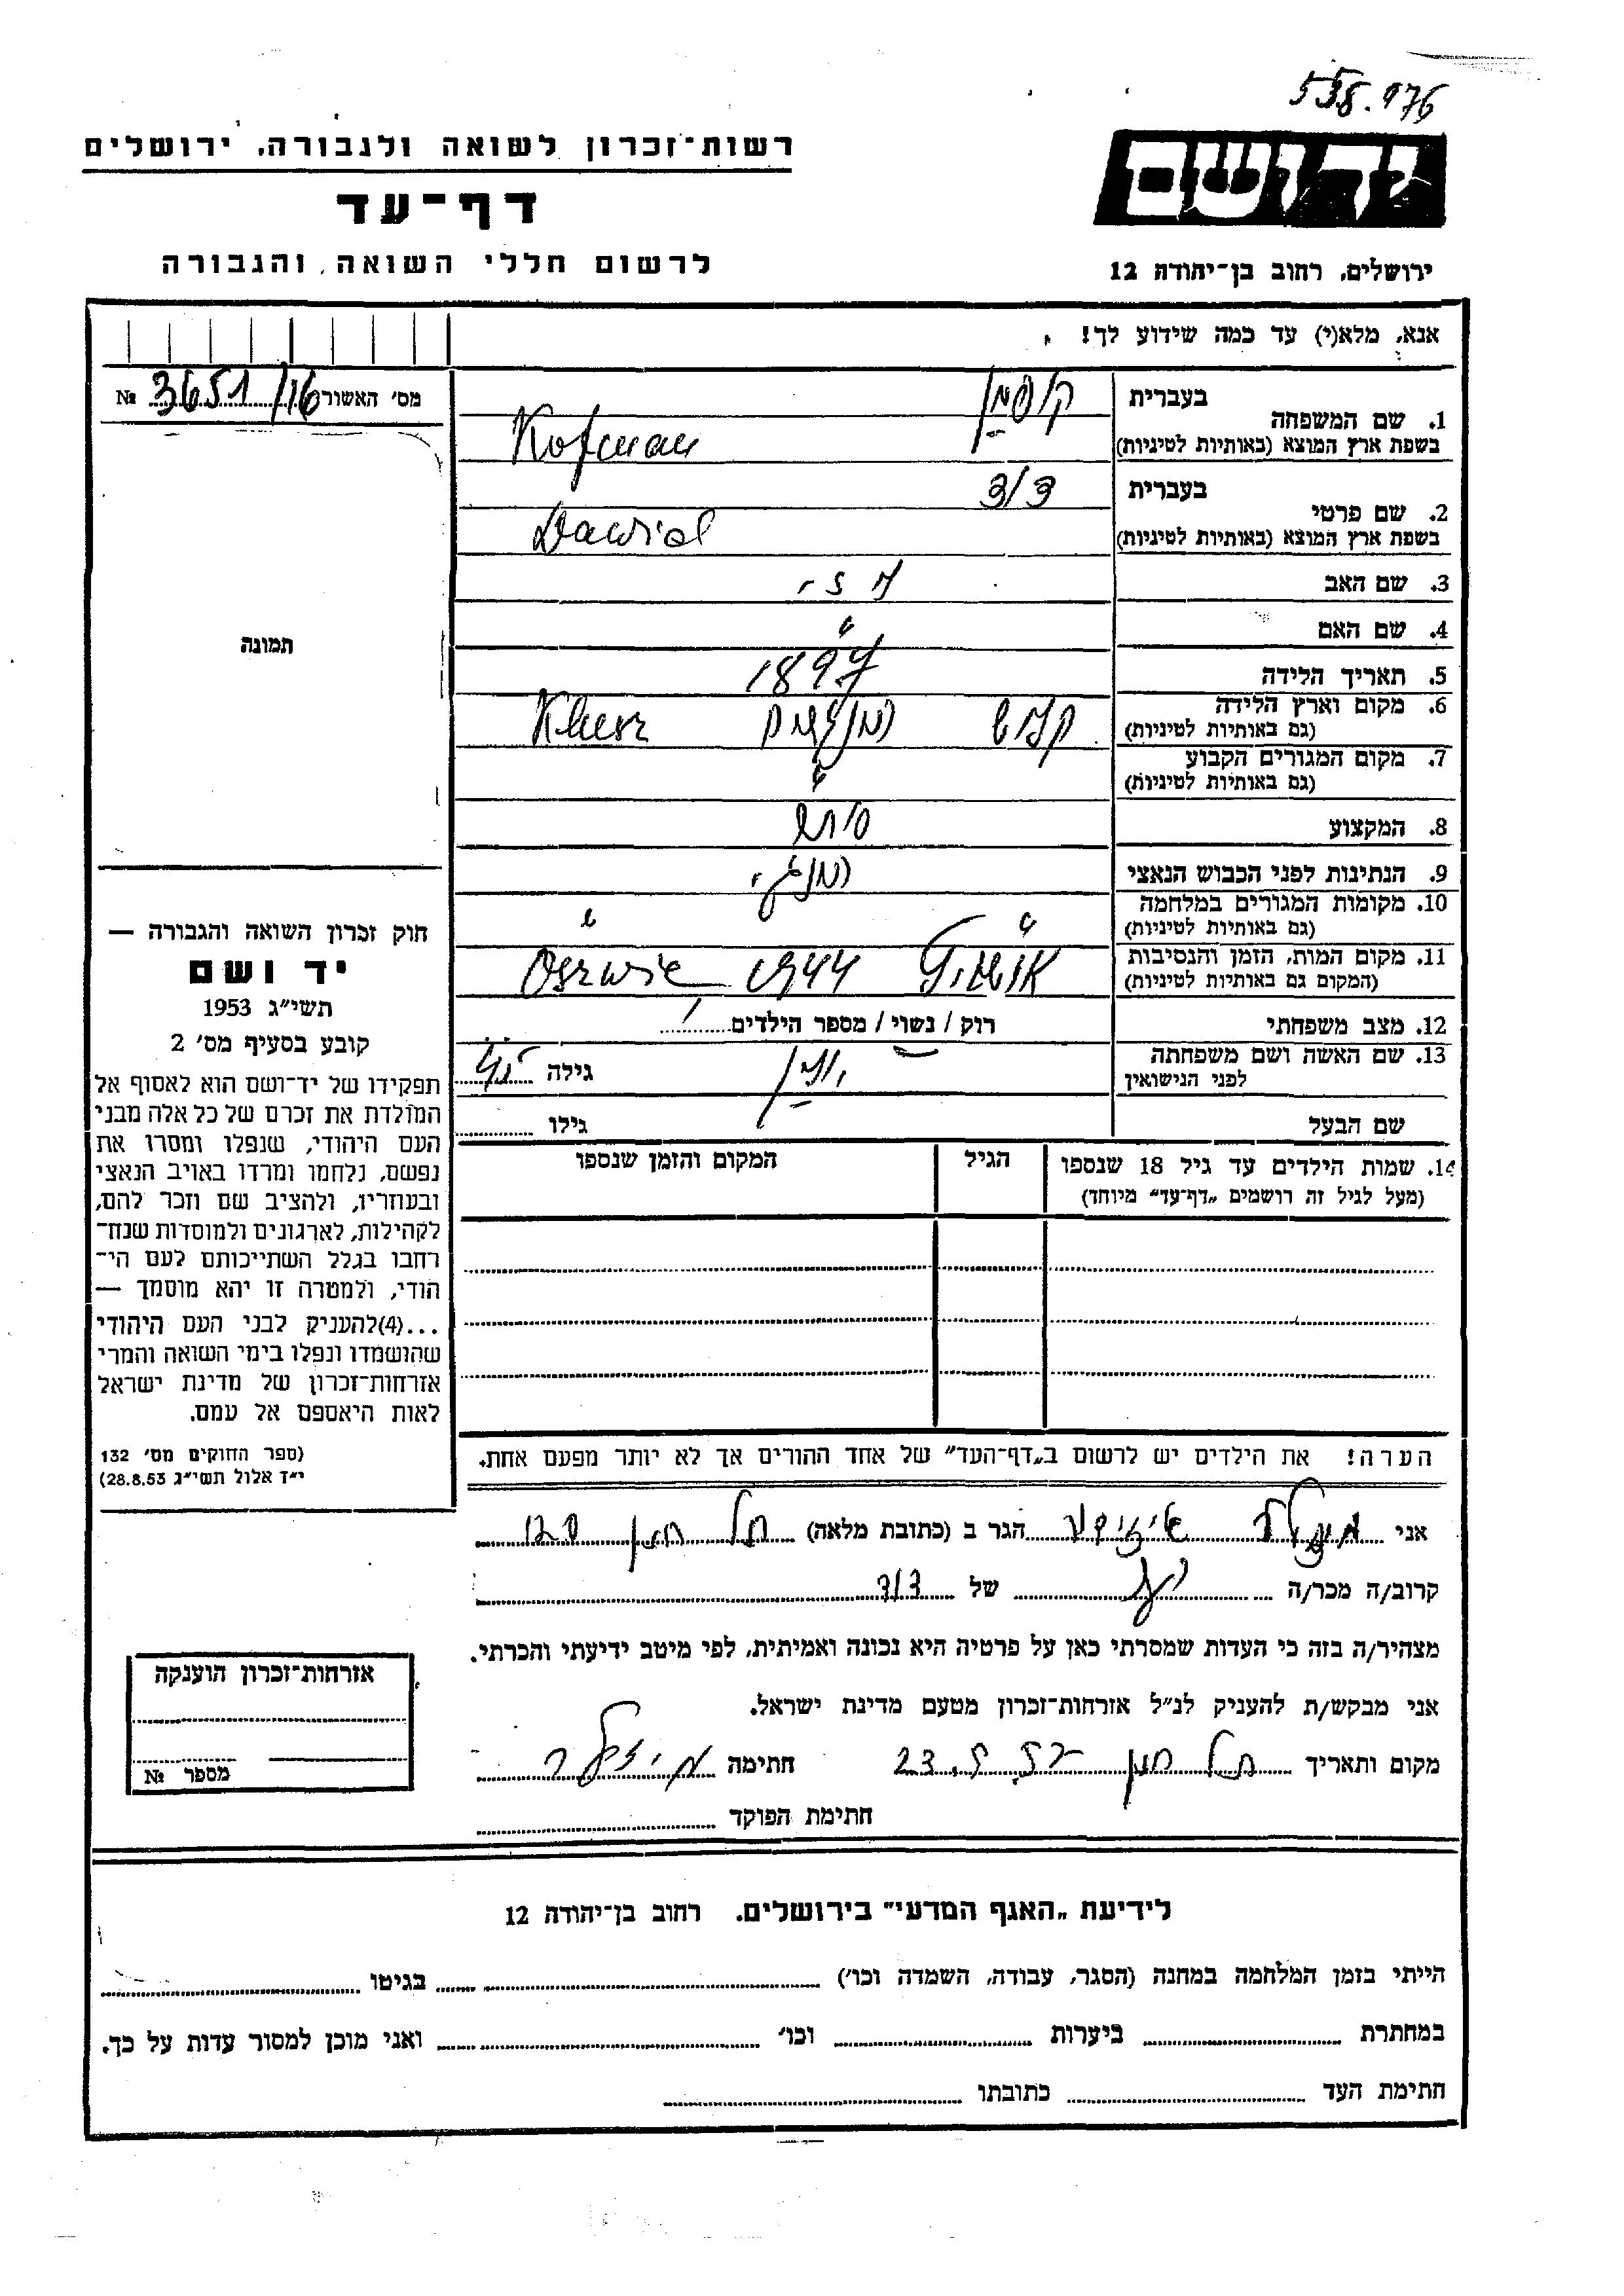 538.976
רשות־זכרון לשואה ולגבורה, ירושלים
דף־עד
לרשום חללי השואה והגבורה
יד ושם
ירושלים, רחוב בן־יהודה 12
אנא, מלא(י) עד כמה שידוע לך!
מס׳ האשור 3651/16 №
תמונה
1. שם המשפחה בעברית קופמן
בשפת ארץ המוצא (באותיות לטיניות) Kofman
2. שם פרטי בעברית דוד
בשפת ארץ המוצא (באותיות לטיניות) Dawid
3. שם האב
4. שם האם "
5. תאריך הלידה 1897
6. מקום וארץ הלידה (גם באותיות לטיניות)
7. מקום המגורים הקבוע (גם באותיות לטיניות) "
8. המקצוע סוחר
9. הנתינות לפני הכבוש הנאצי
10. מקומות המגורים במלחמה (גם באותיות לטיניות) " "
11. מקום המות, הזמן והנסיבות (המקום גם באותיות לטיניות) 1944
12. מצב משפחתי רוק / נשוי / מספר הילדים
13. שם האשה ושם משפחתה לפני הנישואין גילה
שם הבעל גילו
14. שמות הילדים עד גיל 18 שנספו (מעל לגיל זה רושמים „דף־עד״ מיוחד) הגיל המקום והזמן שנספו
הערה! את הילדים יש לרשום ב„דף־העד״ של אחד ההורים אך לא יותר מפעם אחת.
חוק זכרון השואה והגבורה —
יד ושם
תשי״ג 1953
קובע בסעיף מס׳ 2
תפקידו של יד־ושם הוא לאסוף אל
המולדת את זכרם של כל אלה מבני
העם היהודי, שנפלו ומסרו את
נפשם, נלחמו ומרדו באויב הנאצי
ובעוזריו, ולהציב שם וזכר להם,
לקהילות, לארגונים ולמוסדות שנח־
רחבו בגלל השתייכותם לעם הי־
הודי, ולמטרה זו יהא מוסמך —
...(4)להעניק לבני העם היהודי
שהושמדו ונפלו בימי השואה והמרי
אזרחות־זכרון של מדינת ישראל
לאות היאספם אל עמם.
(ספר החוקים מס׳ 132
י״ד אלול תשי״ג 28.8.53)
אני הגר ב (כתובת מלאה) תל חנן
קרוב/ה מכר/ה של דוד
מצהיר/ה בזה כי העדות שמסרתי כאן על פרטיה היא נכונה ואמיתית, לפי מיטב ידיעתי והכרתי.
אני מבקש/ת להעניק לנ״ל אזרחות־זכרון מטעם מדינת ישראל.
מקום ותאריך תל חנן חתימה
חתימת הפוקד
אזרחות־זכרון הוענקה
מספר №
לידיעת „האגף המדעי״ בירושלים. רחוב בן־יהודה 12
הייתי בזמן המלחמה במחנה (הסגר, עבודה, השמדה וכו׳) בגיטו
במחתרת ביערות וכו׳ ואני מוכן למסור עדות על כך.
חתימת העד כתובתו